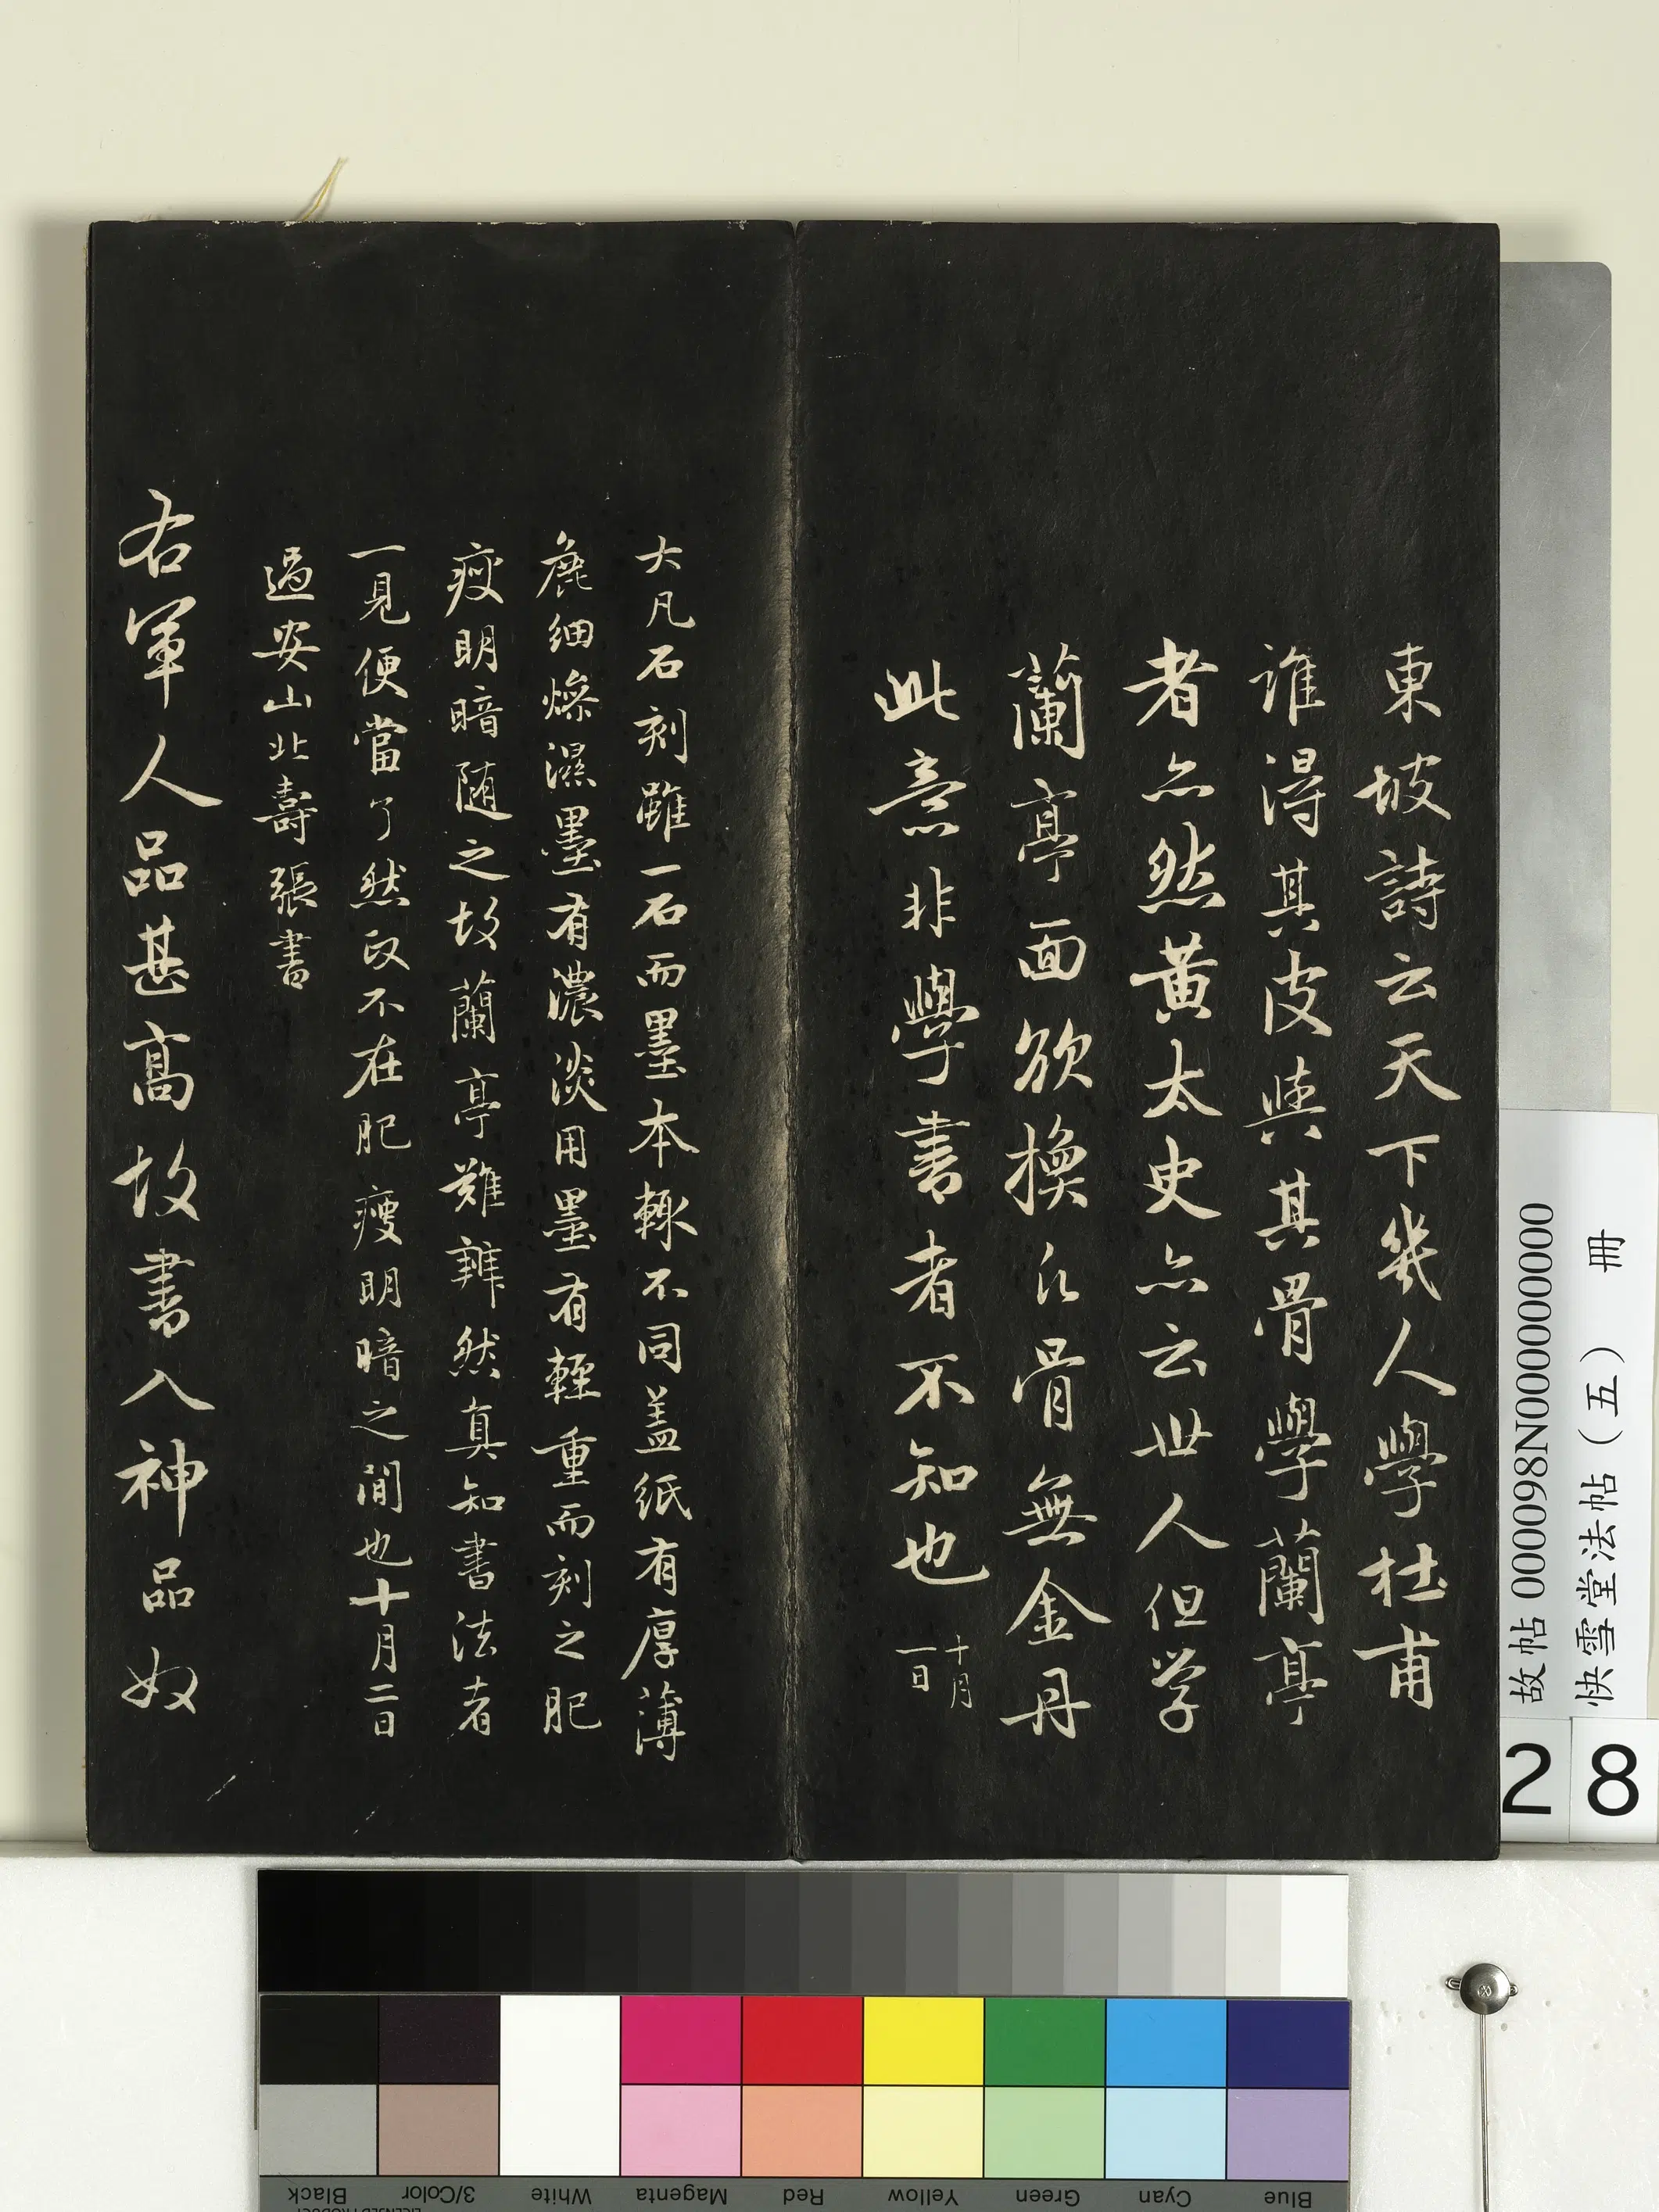 東坡詩云天下幾人學杜甫
誰得其皮與其骨學蘭亭
者亦然黃太史亦云世人但学
蘭亭面欲換凡骨無金丹
此意非學書者不知也十月
一日
大凡石刻雖一石而墨本輙不同盖紙有厚薄
麁細燥濕墨有濃淡用墨有輕重而刻之肥
瘦明暗随之故蘭亭難辨然真知書法者
一見便當了然政不在肥瘦明暗之間也十月二日
過安山北壽張書
右軍人品甚高故書入神品奴
故帖 000098N000000000
快雪堂法帖（五） 冊
28
Black
3/Color
White
Magenta
Red
Yellow
Green
Cyan
Blue